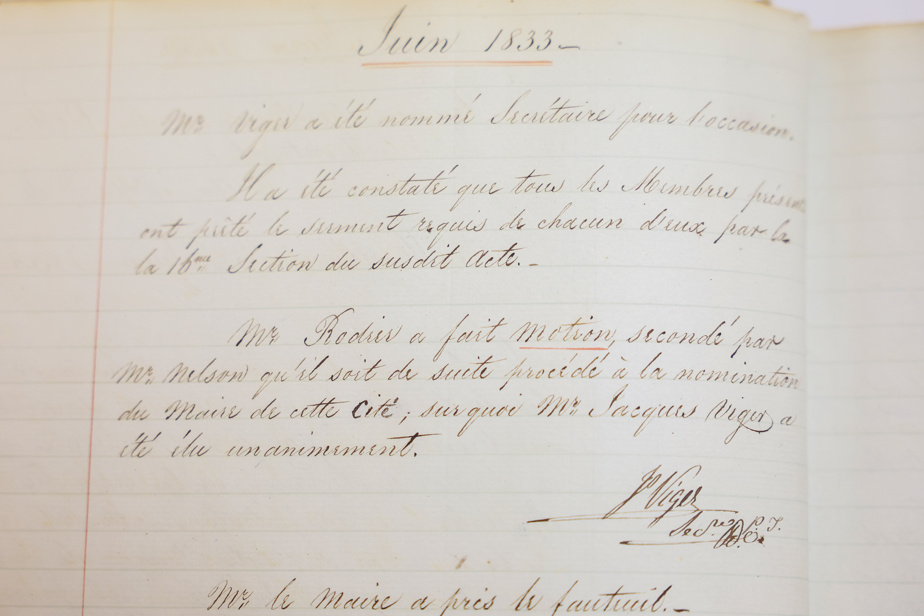 Juin 1833 —
Mr. Viger a été nommé Secrétaire pour l'occasion.
Il a été constaté que tous les Membres présents
ont prêté le serment requis de chacun d'eux par la
la 16me Section du susdit Acte. —
Mr. Rodier a fait motion, secondé par
Mr. Nelson qu'il soit de suite procédé à la nomination
du Maire de cette Cité; sur quoi Mr. Jacques Viger a
été élu unanimement.
Js Viger
Secre.
Mr. le Maire a pris le fauteuil. —